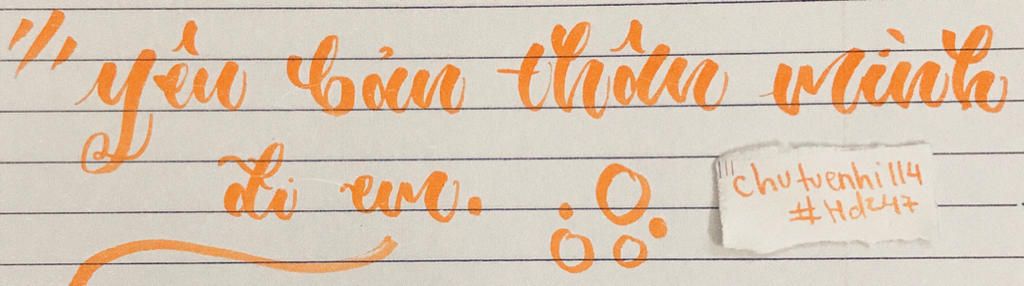 "yêu bản thân mình
đi em.
chutuenhi114
#Hd247